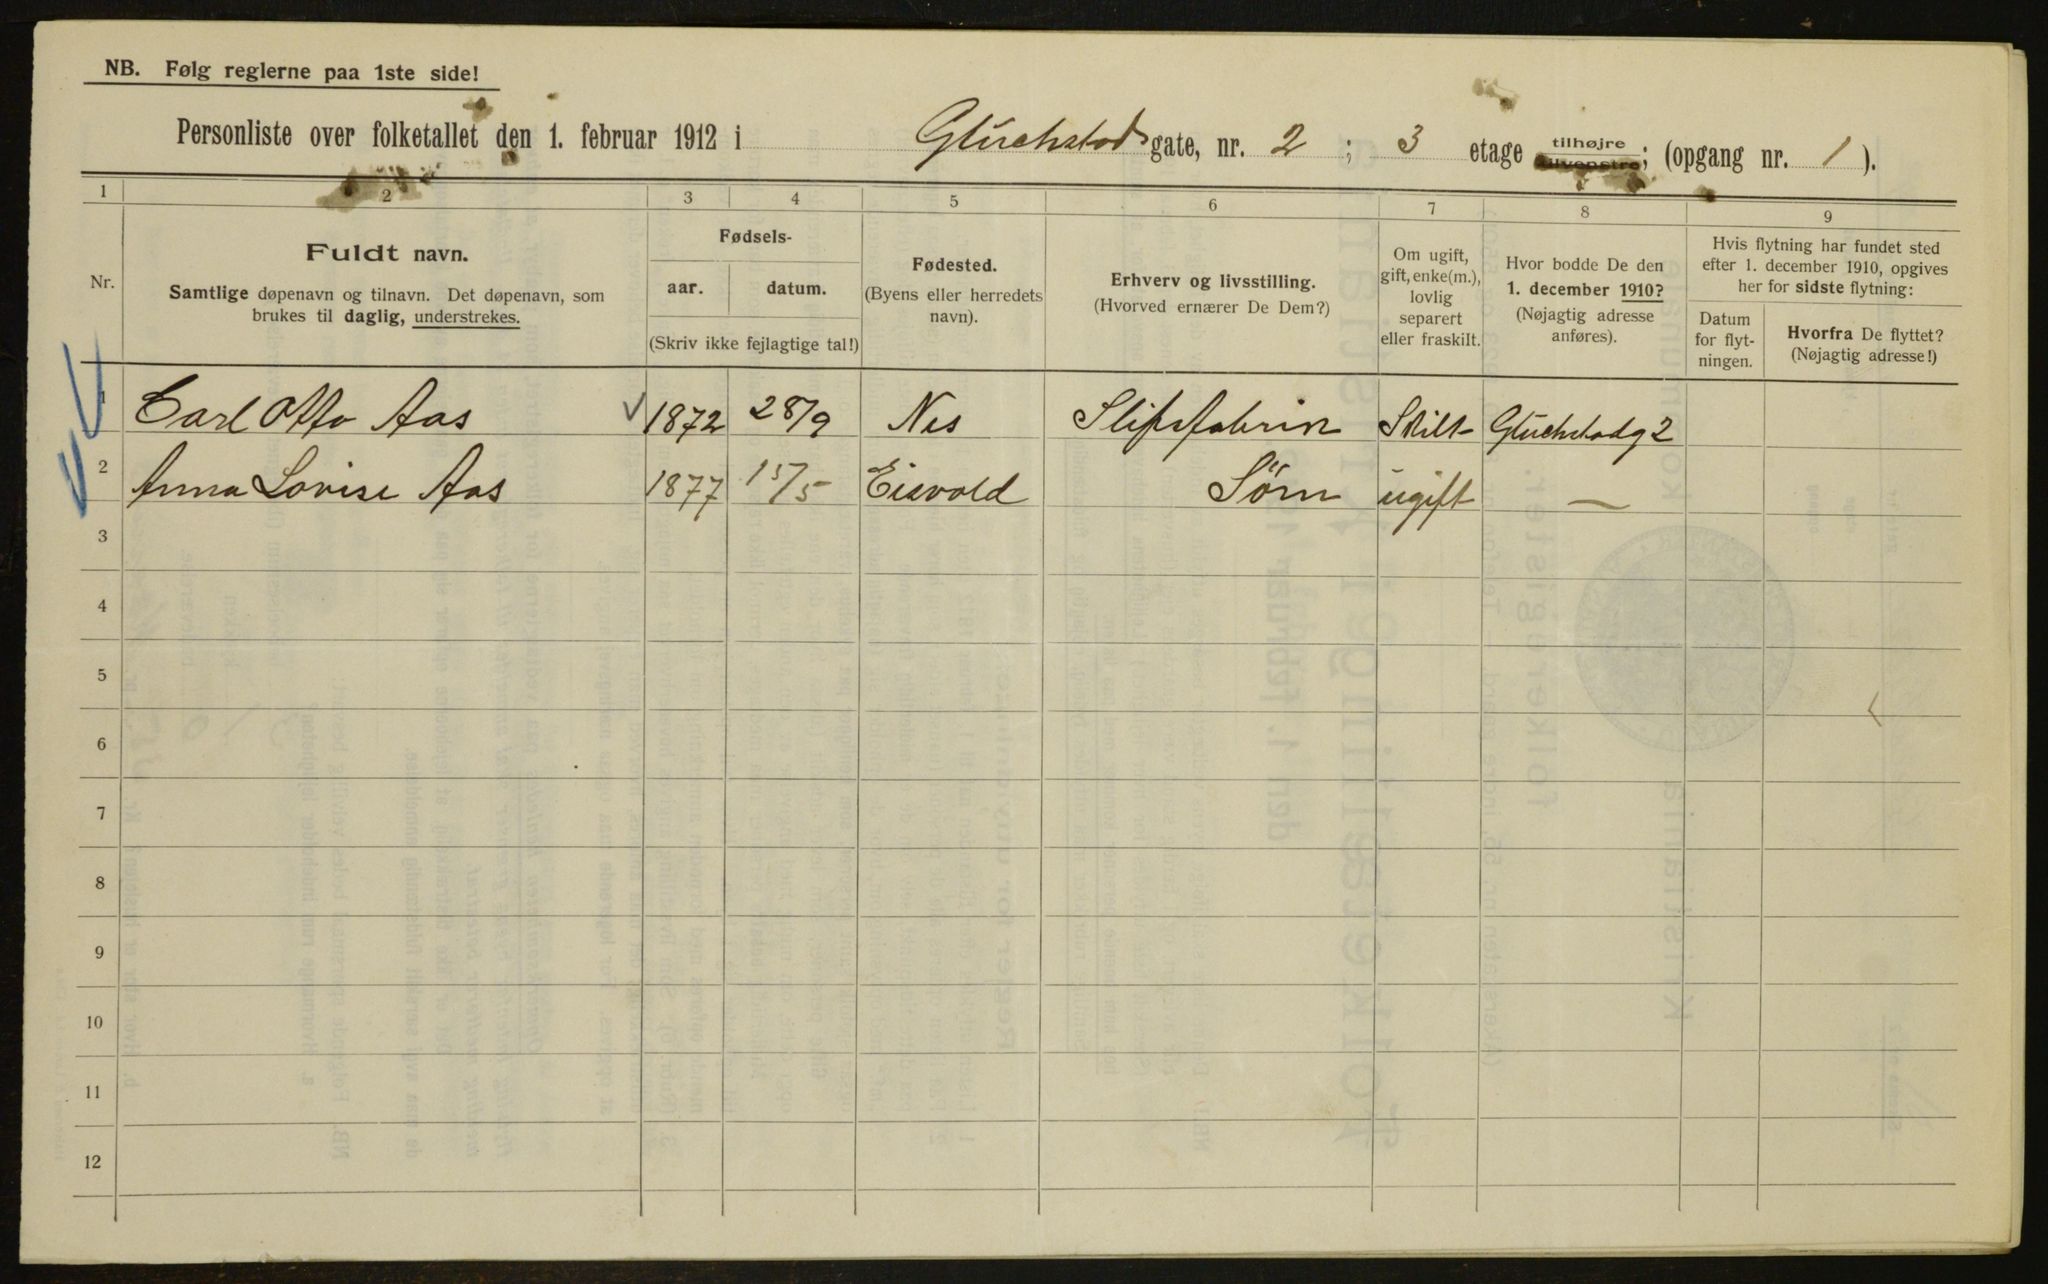 NB. Følg reglerne paa 1ste side!
Personliste over folketallet den 1. februar 1912 i Gluchstads gate, nr. 2 ; 3 etage tilhøjre tilvenstre; (opgang nr. 1 ).
1 2 3 4 5 6 7 8 9
Nr.
Fuldt navn.
Samtlige døpenavn og tilnavn. Det døpenavn, som
brukes til daglig, understrekes.
Fødsels-
aar. datum.
(Skriv ikke fejlagtige tal!)
Fødested.
(Byens eller herredets
navn).
Erhverv og livsstilling.
(Hvorved ernærer De Dem?)
Om ugift,
gift, enke(m.),
lovlig
separert
eller fraskilt.
Hvor bodde De den
1. december 1910?
(Nøjagtig adresse
anføres).
Hvis flytning har fundet sted
efter 1. december 1910, opgives
her for sidste flytning:
Datum
for flyt-
ningen.
Hvorfra De flyttet?
(Nøjagtig adresse!)
1 Carl Otto Aas 1872 28/9 Nes Slipsfabrik Skilt Gluchstadg 2
2 Anna Lovise Aas 1877 15/5 Eisvold Søm ugift —
3
4
5
6
7
8
9
10
11
12